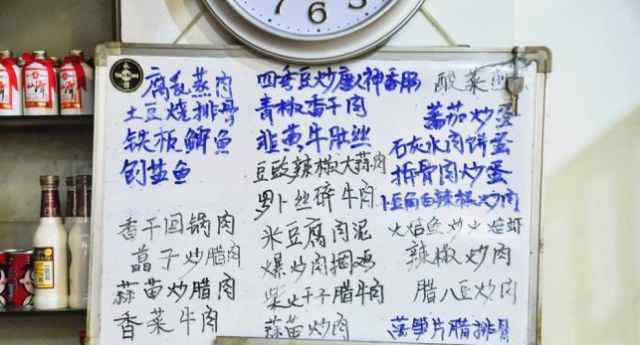 腐乳蒸肉
土豆烧排骨
铁板鲫鱼
刨盐鱼
香干回锅肉
藠子炒腊肉
蒜苗炒腊肉
香菜牛肉
四季豆炒唐人神香肠
青椒香干肉
韭黄牛肚丝
豆豉辣椒大蒜肉
萝卜丝碎牛肉
米豆腐肉泥
爆炒肉捆鸡
柴火干子腊牛肉
蒜苗炒肉
酸菜
蕃茄炒蛋
石灰水肉饼蛋
拆骨肉炒蛋
卜豆角白辣椒炒肉
火焙鱼炒火焙虾
辣椒炒肉
腊八豆炒肉
笋片腊排骨
5
6
7